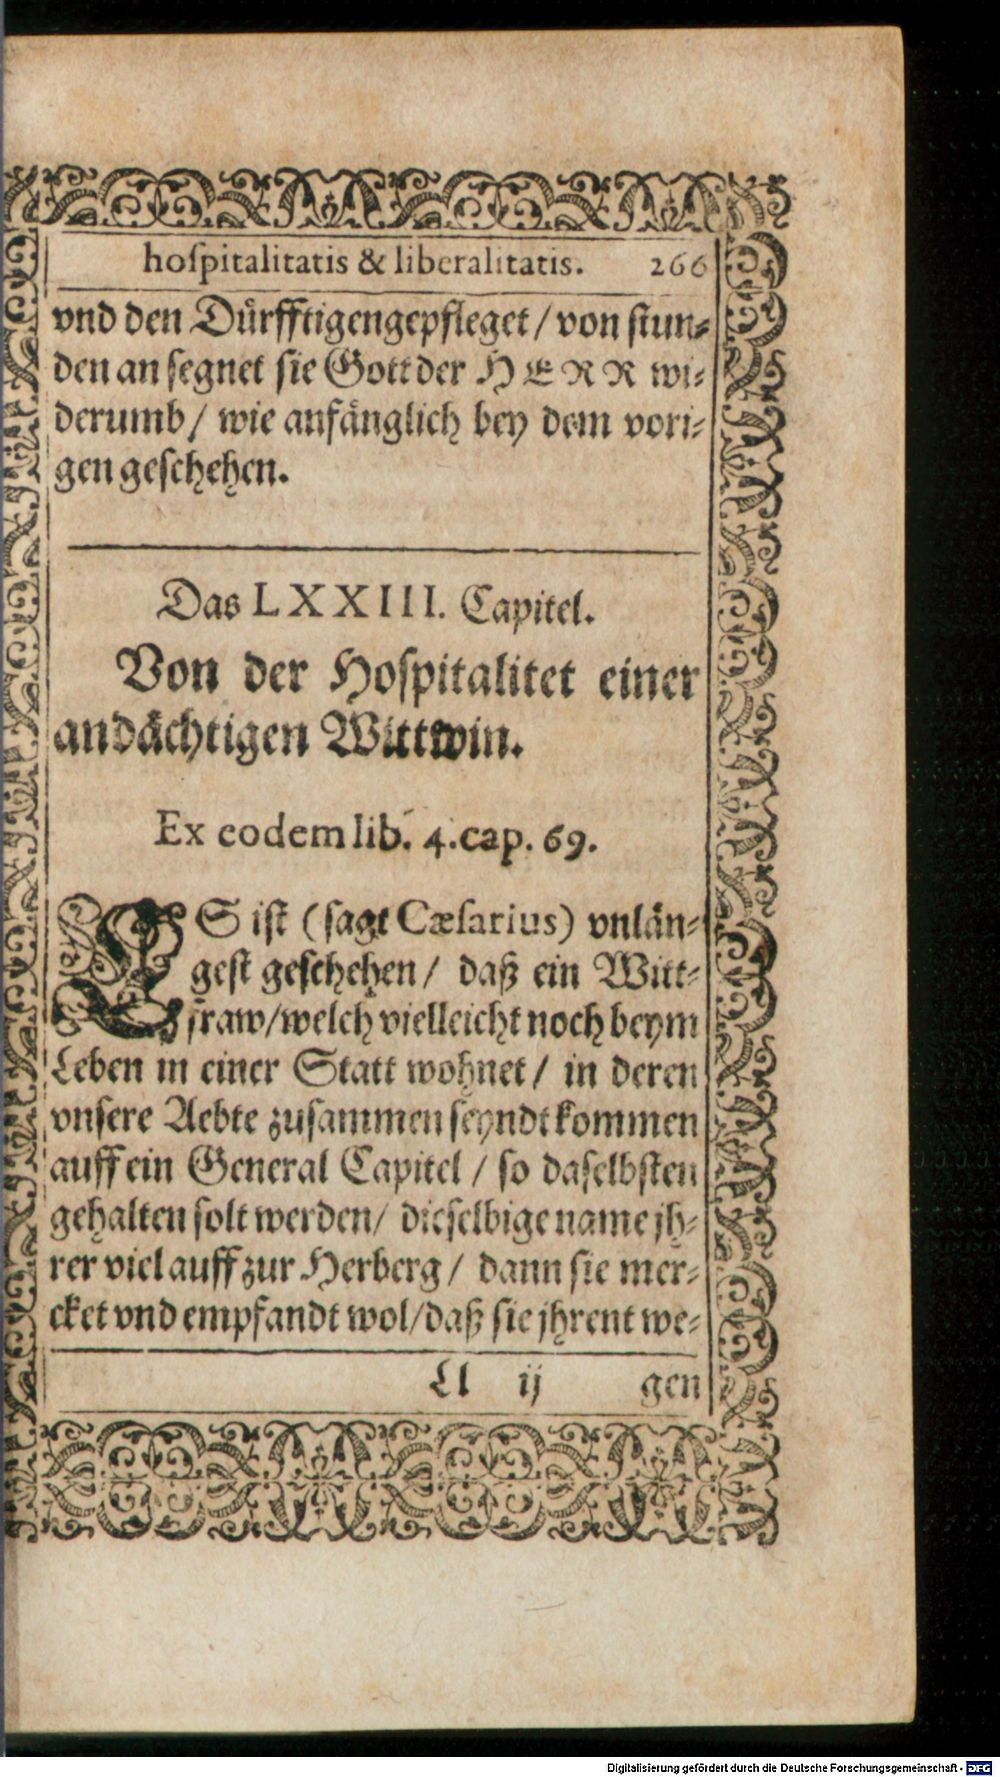 hoſpitalitatis & liberalitatis. 266
vnd den Dürfftigen gepfleget / von ſtun-
den an ſegnet ſie Gott der HERR wi-
derumb / wie anfänglich bey dem vori-
gen geſchehen.
Das LXXIII. Capitel.
Von der Hoſpitalitet einer
andächtigen Wittwin.
Ex eodem lib. 4. cap. 69.
ES iſt (ſagt Cæſarius) vnlän-
geſt geſchehen / daß ein Witt-
fraw / welch vielleicht noch beym
Leben in einer Statt wohnet / in deren
vnſere Aebte zuſammen ſeyndt kommen
auff ein General Capitel / ſo daſelbſten
gehalten ſolt werden / dieſelbige name jh-
rer viel auff zur Herberg / dann ſie mer-
cket vnd empfandt wol / daß ſie jhrent we-
Ll ij gen
Digitalisierung gefördert durch die Deutsche Forschungsgemeinschaft - DFG